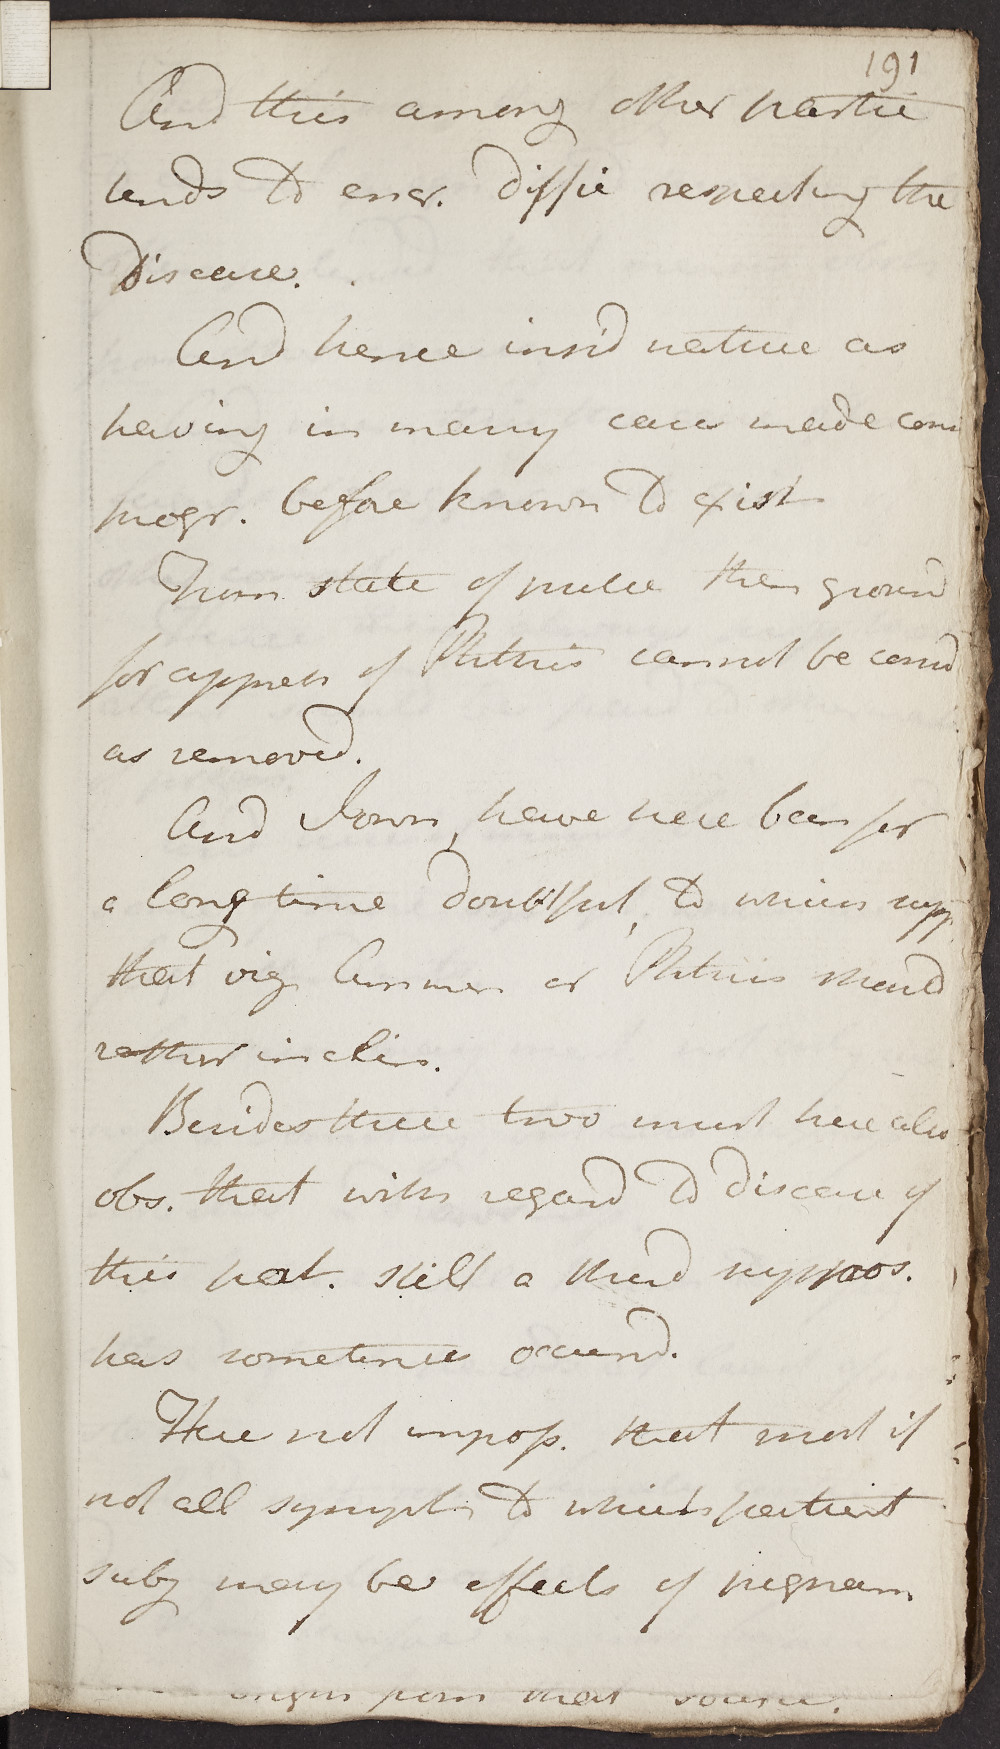 191
And this among other partic
tends to encr. diffic respecting the
Disease.
And hence insid nature as
having in many cases made cons
progr. before known to exist
From state of pulse then ground
for appreh of Phthisis cannot be consid
as removed.
And I own, have here been for
a long time doubtful, to which supp
that viz. Amen or Phthisis should
rather inclin.
Besides these two must here also
obs. that with regard to disease of
this pat. still a third suppos.
has sometimes occurrd.
Here not imposs. that most if
not all symptoms to which patient
subj may be effects of pregnan
origin from that source.